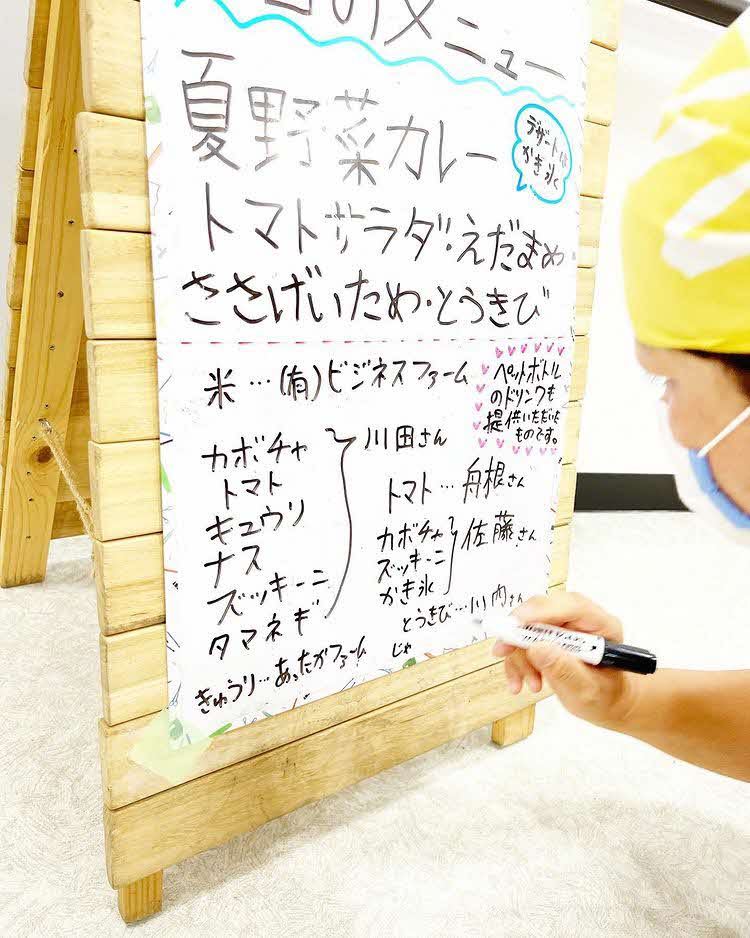 日のメニュー
夏野菜カレー
デザートは
かき氷
トマトサラダ・えだまめ
ささげいため・とうきび
米…(有)ビジネスファーム
ペットボトル
のドリンクも
提供いただいた
ものです。
カボチャ
トマト
キュウリ
ナス
ズッキーニ
タマネギ
川田さん
きゅうり…あったかファーム
トマト…舟根さん
カボチャ
ズッキーニ
かき氷
佐藤さん
とうきび…川内さん
じゃ